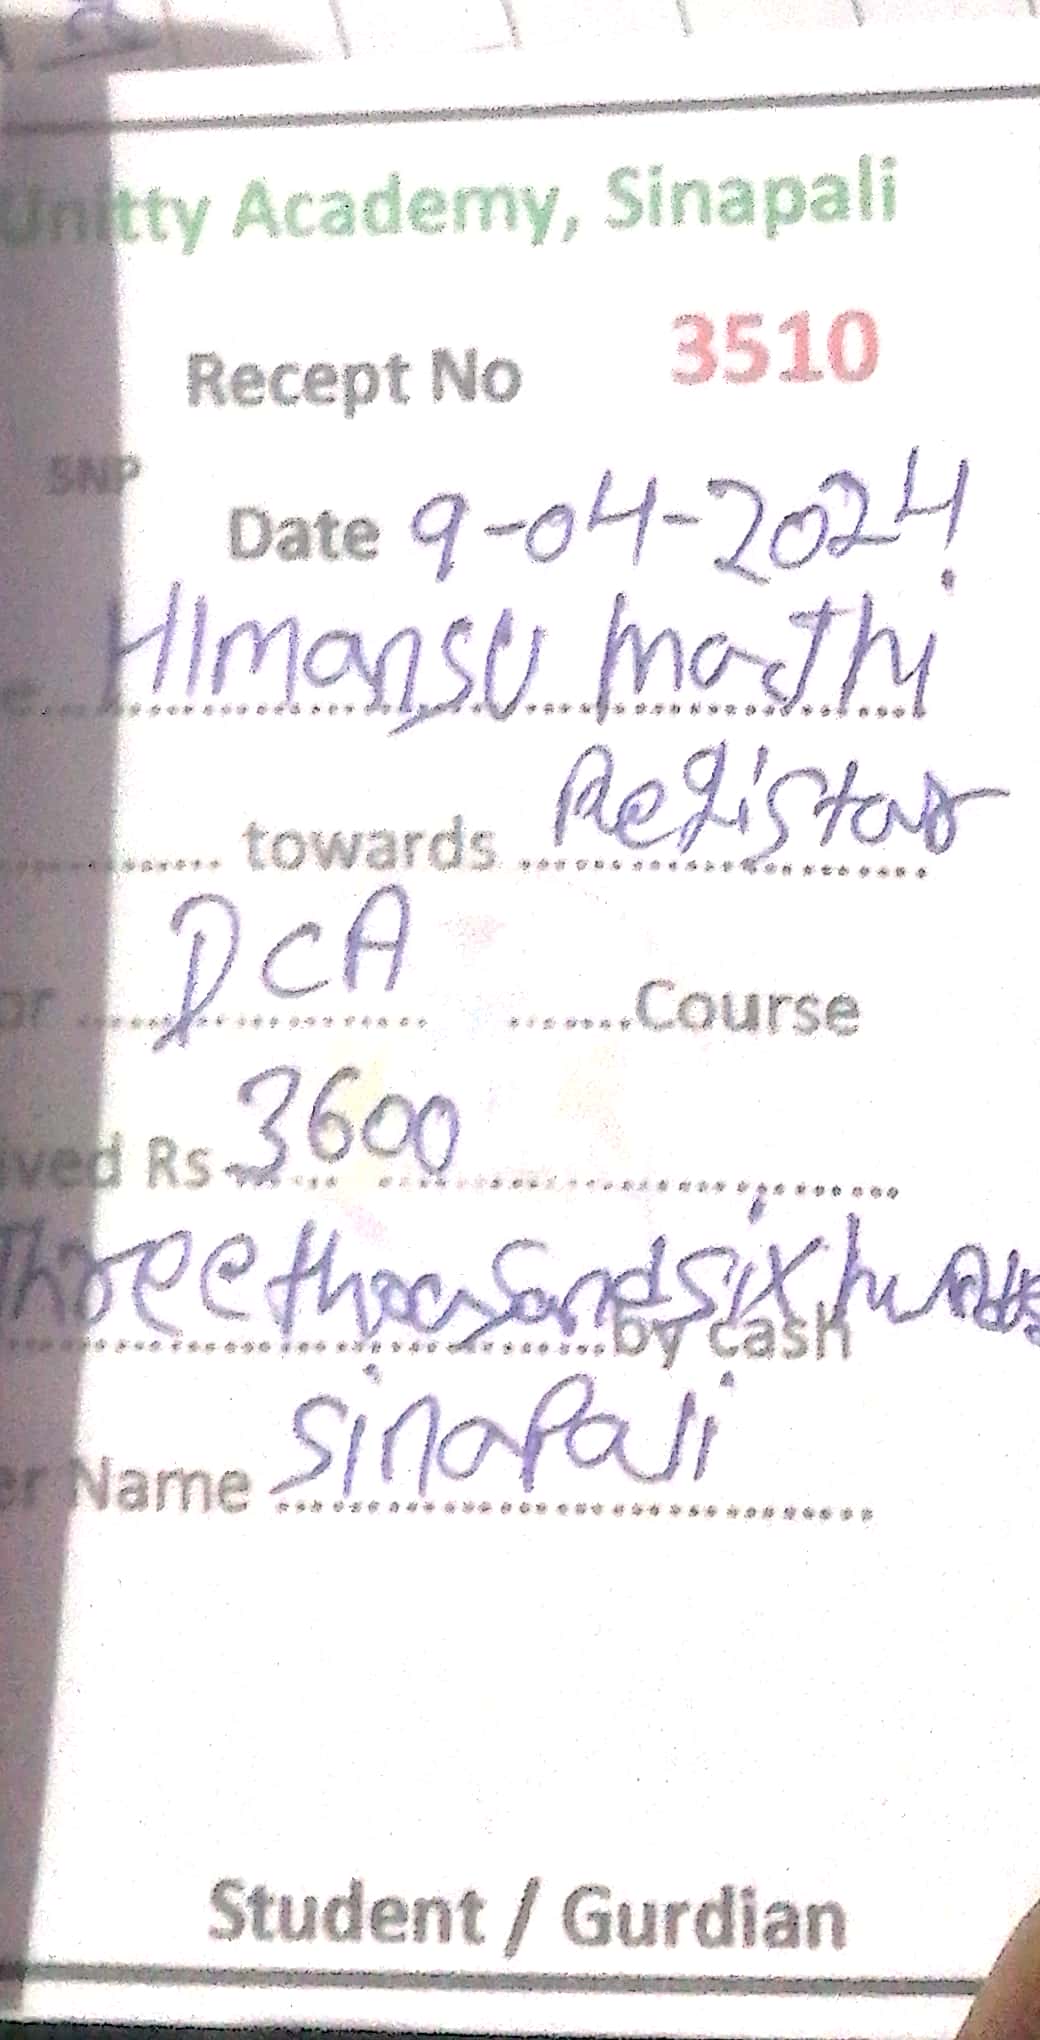 Unitty Academy, Sinapali
Recept No 3510
SNP
Date 9-04-2024
HImansu majhi
towards Registar
or DCA Course
ived Rs 3600
Three thousand six
by cash
er Name sinapali
Student / Gurdian